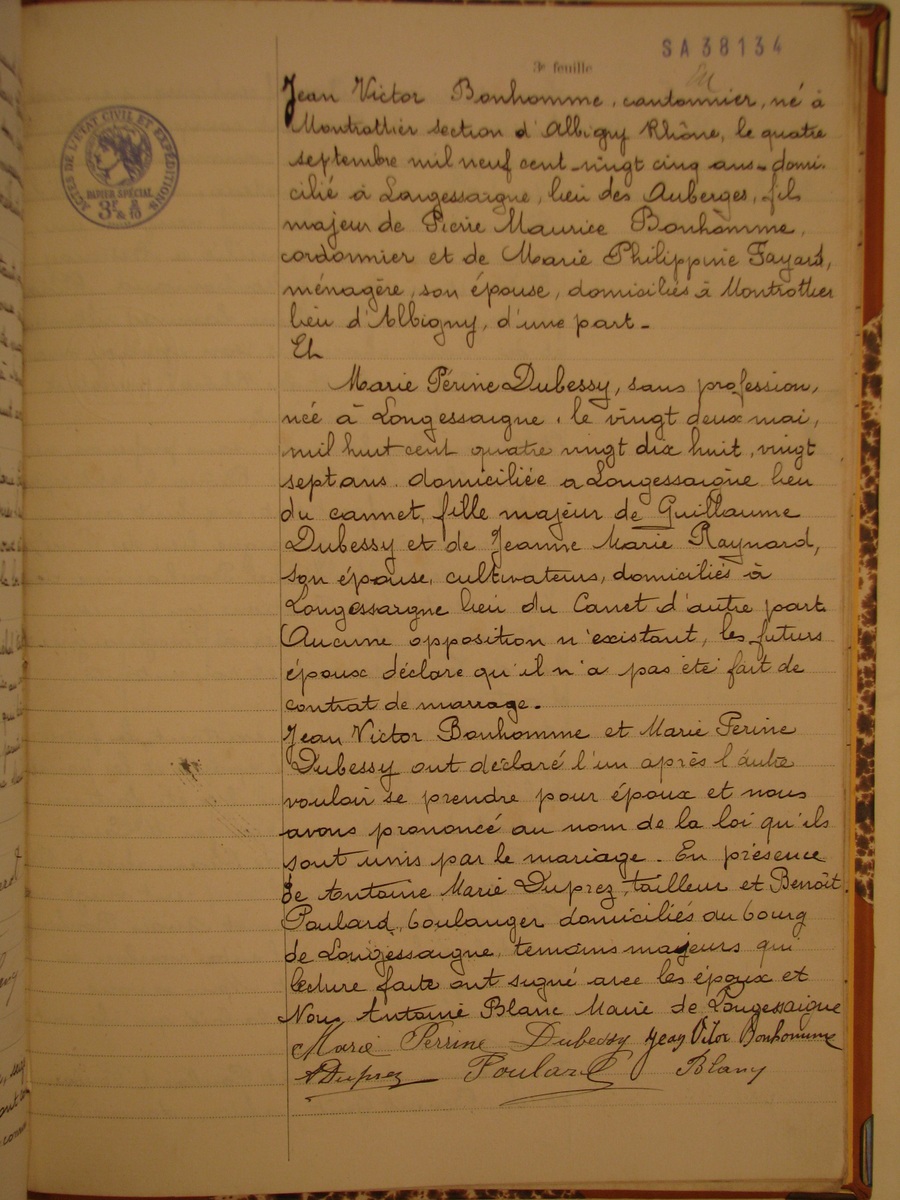 SA38134
3e feuille
ACTES DE L'ETAT CIVIL ET EXPÉDITIONS
PAPIER SPÉCIAL
Jean Victor Bonhomme, cantonnier, né à
Montrottier section d'Albigny Rhône, le quatre
septembre mil neuf cent_vingt cinq ans_domi-
cilié à Longessaigne, lieu des Auberges, fils
majeur de Pierre Maurice Bonhomme,
cordonnier et de Marie Philippine Fayard,
ménagère, son épouse, domiciliés à Montrottier
lieu d'Albigny, d'une part_
Et
Marie Périne Dubessy, sans profession,
née à Longessaigne, le vingt deux mai,
mil huit cent quatre vingt dix huit, vingt
sept ans. domiciliée a Longessaigne lieu
du cannet, fille majeur de Guillaume
Dubessy et de Jeanne Marie Raynard,
son épouse, cultivateurs, domiciliés à
Longessaigne lieu du Canet d'autre part.
Aucune opposition n'existant, les futurs
époux déclare qu'il n'a pas été fait de
contrat de marrage.
Jean Victor Bonhomme et Marie Perine
Dubessy ont déclaré l'un après l'autre
vouloir se prendre pour époux et nous
avons prononcé au nom de la loi qu'ils
sont unis par le mariage. En présence
de Antoine Marie Duprez, tailleur et Benoît
Poulard, boulanger domiciliés au bourg
de Longessaigne, temoins majeurs qui
lecture faite ont signé avec les époux et
Nous Antoine Blanc Maire de Longessaigne
Marie Perrine Dubessy Jean Vitor Bonhomme
A Duprez Poulard Blanc